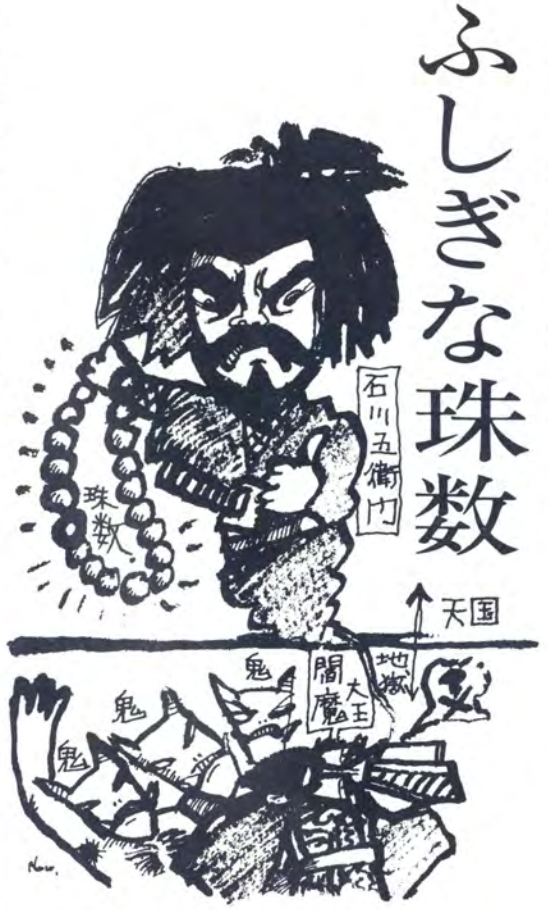 ふしぎな珠数
石川五衛門
珠数
天国
地獄
閻魔
大王
鬼
鬼
鬼